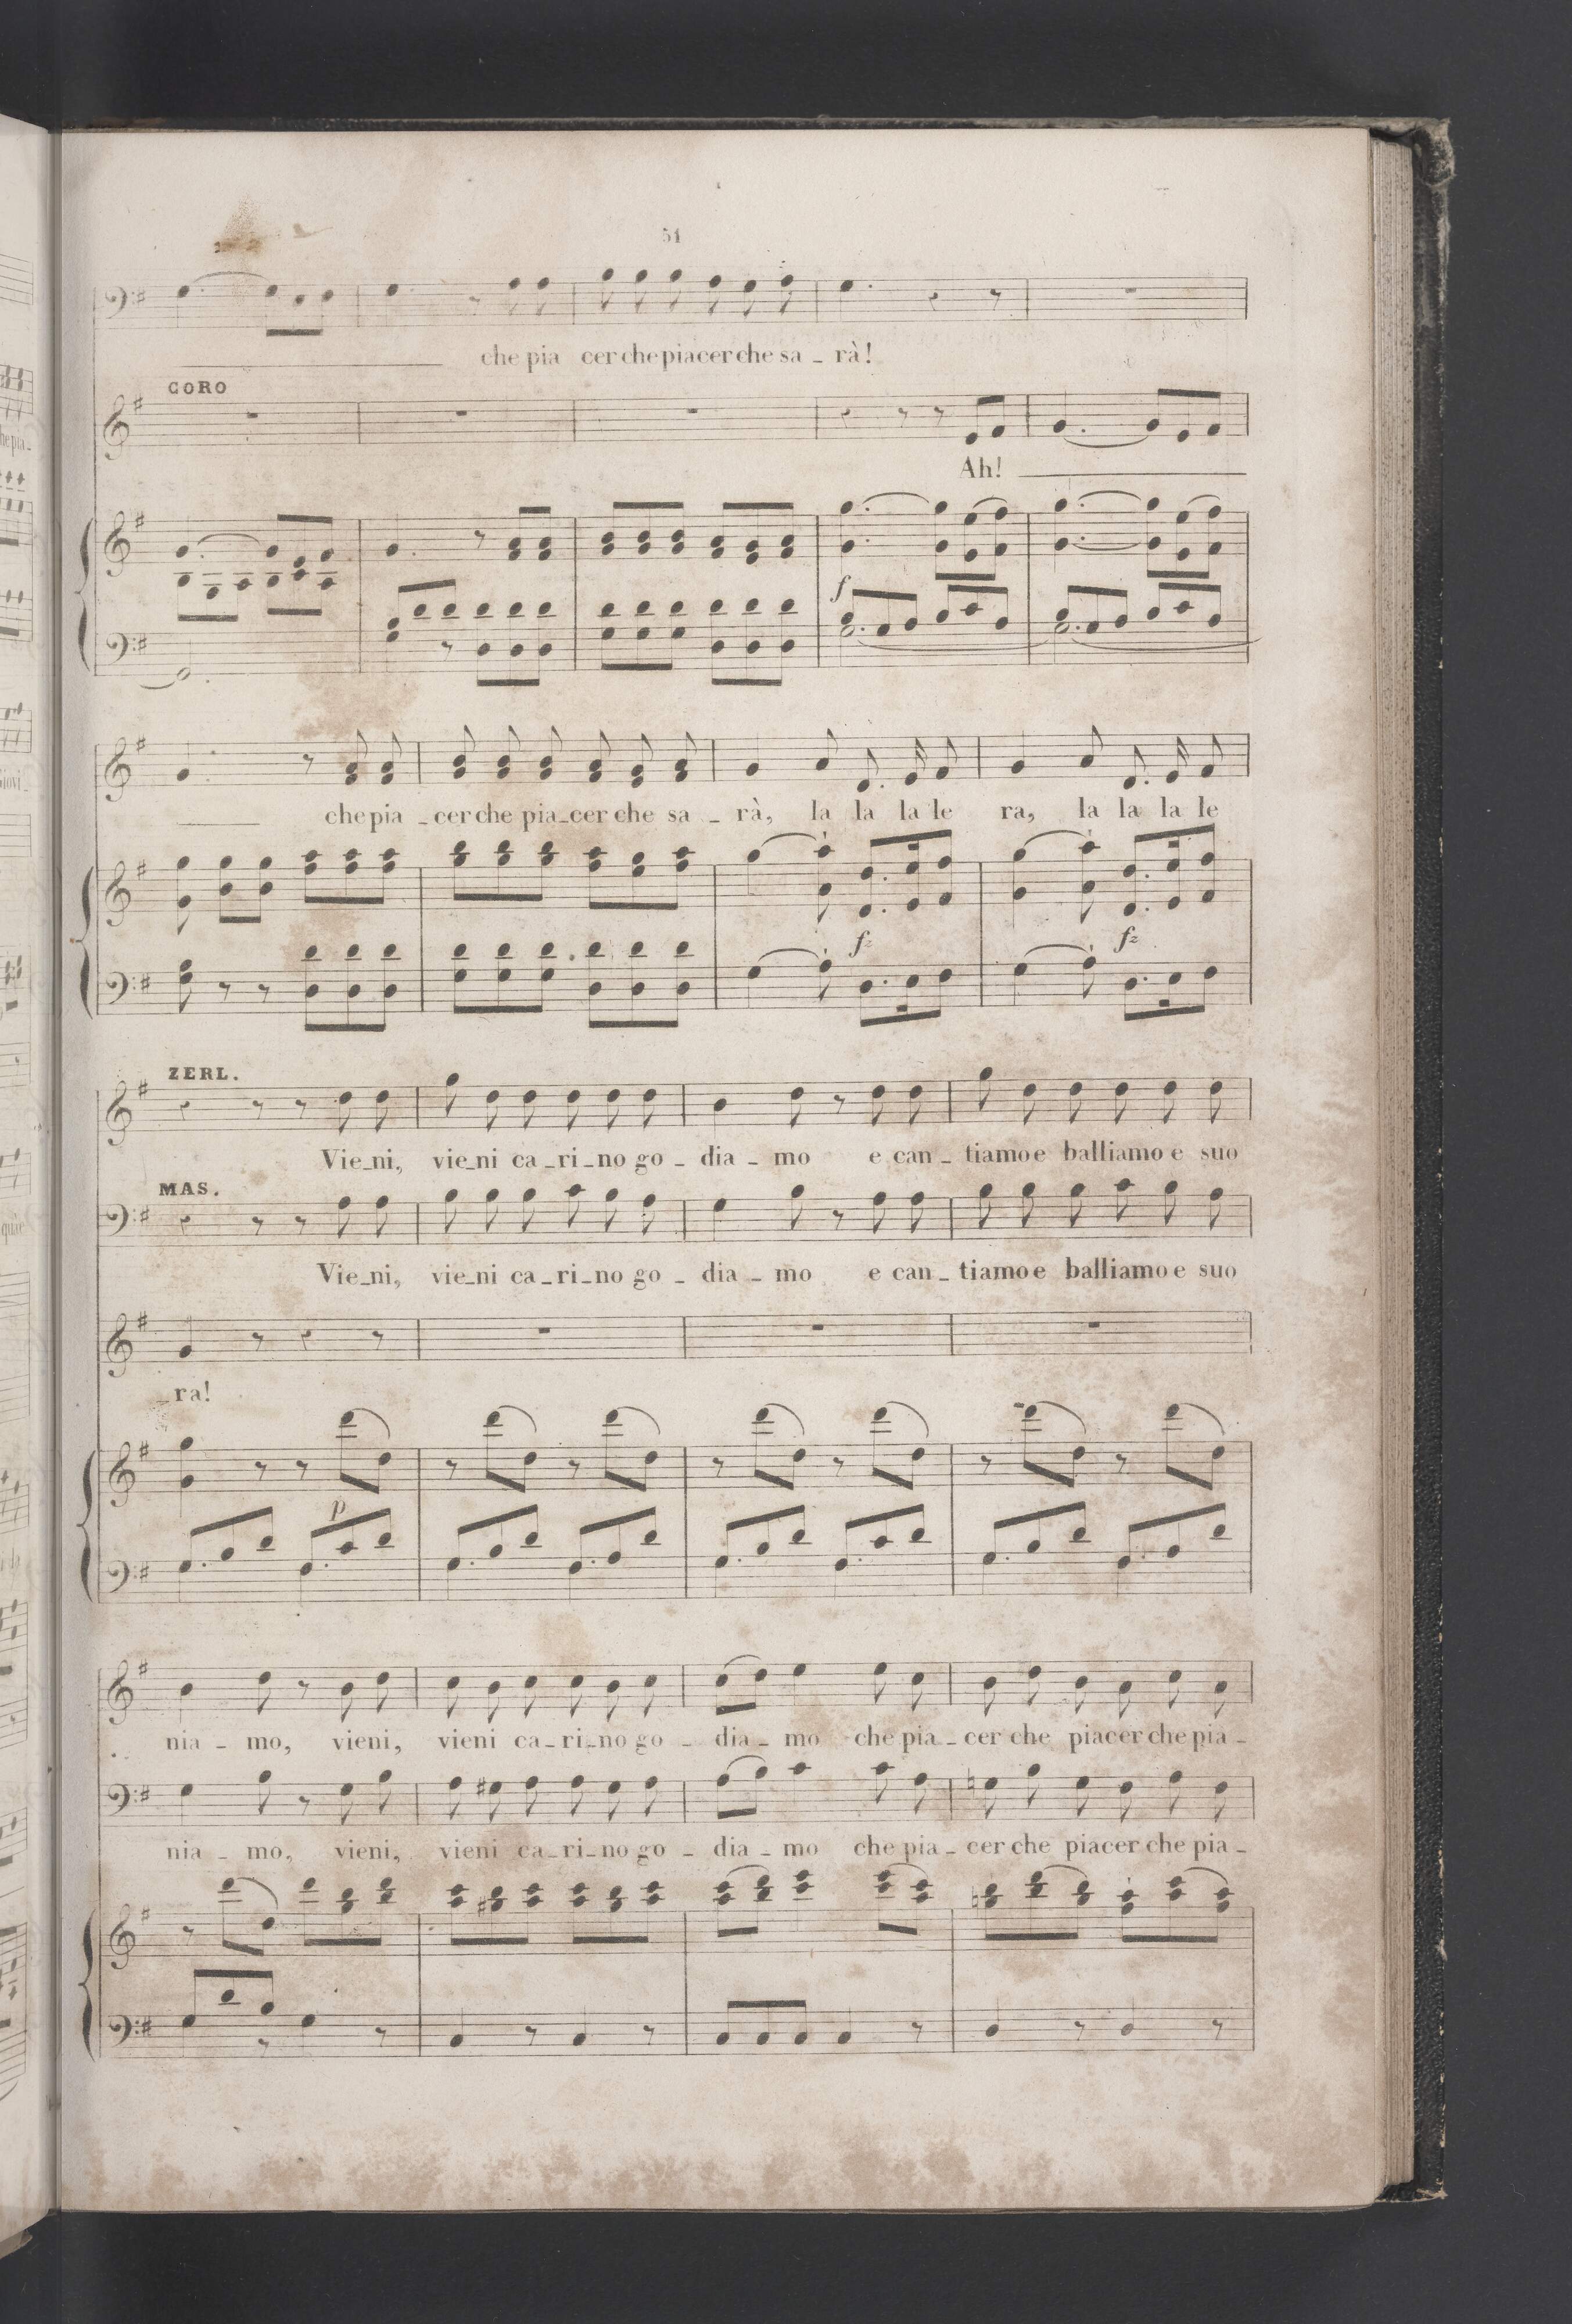 51
che pia cer che piacer che sa _ rà!
CORO
Ah!
f
che pia _ cer che pia _ cer che sa _ rà, la la la le ra, la la la le
fz fz
ZERL.
Vie _ ni, vie _ ni ca _ ri _ no go _ dia _ mo e can _ tiamo e balliamo e suo
MAS.
Vie _ ni, vie _ ni ca _ ri _ no go _ dia _ mo e can _ tiamo e balliamo e suo
_ ra!
p
nia _ mo, vieni, vieni ca _ ri _ no go _ dia _ mo che pia _ cer che piacer che pia _
nia _ mo, vieni, vieni ca _ ri _ no go _ dia _ mo che pia _ cer che piacer che pia _